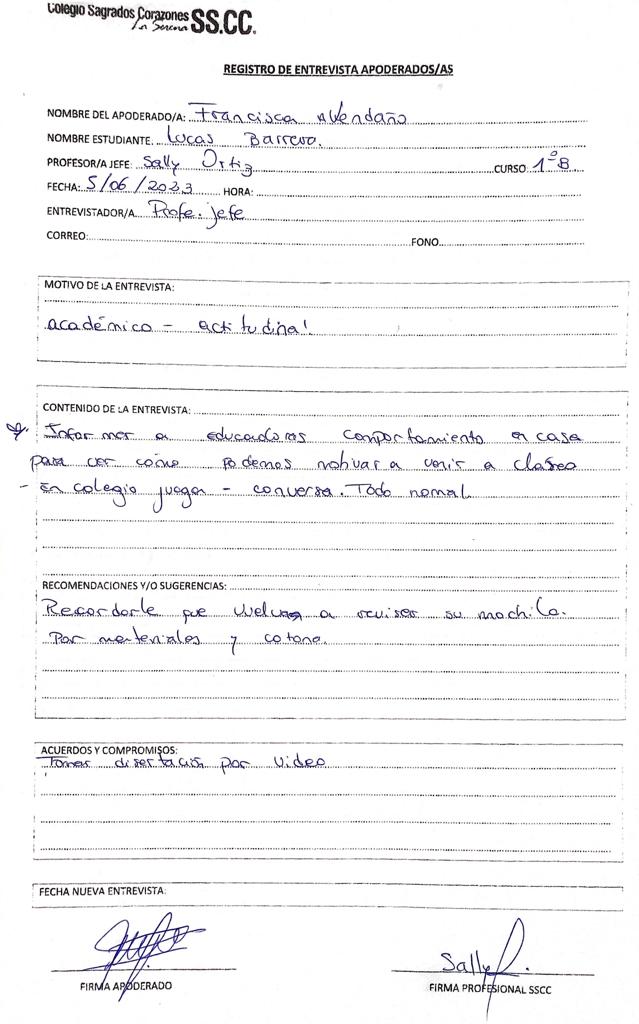 Colegio Sagrados Corazones
La Serena SS.CC.
REGISTRO DE ENTREVISTA APODERADOS/AS
NOMBRE DEL APODERADO/A: Francisca Avendaño
NOMBRE ESTUDIANTE: Lucas Barrero.
PROFESOR/A JEFE: Sally Ortiz CURSO 1°B
FECHA: 5/06/2023 HORA:
ENTREVISTADOR/A Profe. jefe
CORREO: FONO
MOTIVO DE LA ENTREVISTA:
académico - actitudinal
CONTENIDO DE LA ENTREVISTA:
Informar a educadoras comportamiento en casa
para ver cómo podemos motivar a venir a clases
- En colegio juega - conversa. Todo normal
RECOMENDACIONES Y/O SUGERENCIAS:
Recordarle que vuelva a revisar su mochila.
Por materiales y cotona.
ACUERDOS Y COMPROMISOS:
Tomar disertación por video
FECHA NUEVA ENTREVISTA:
Sally O.
FIRMA APODERADO FIRMA PROFESIONAL SSCC